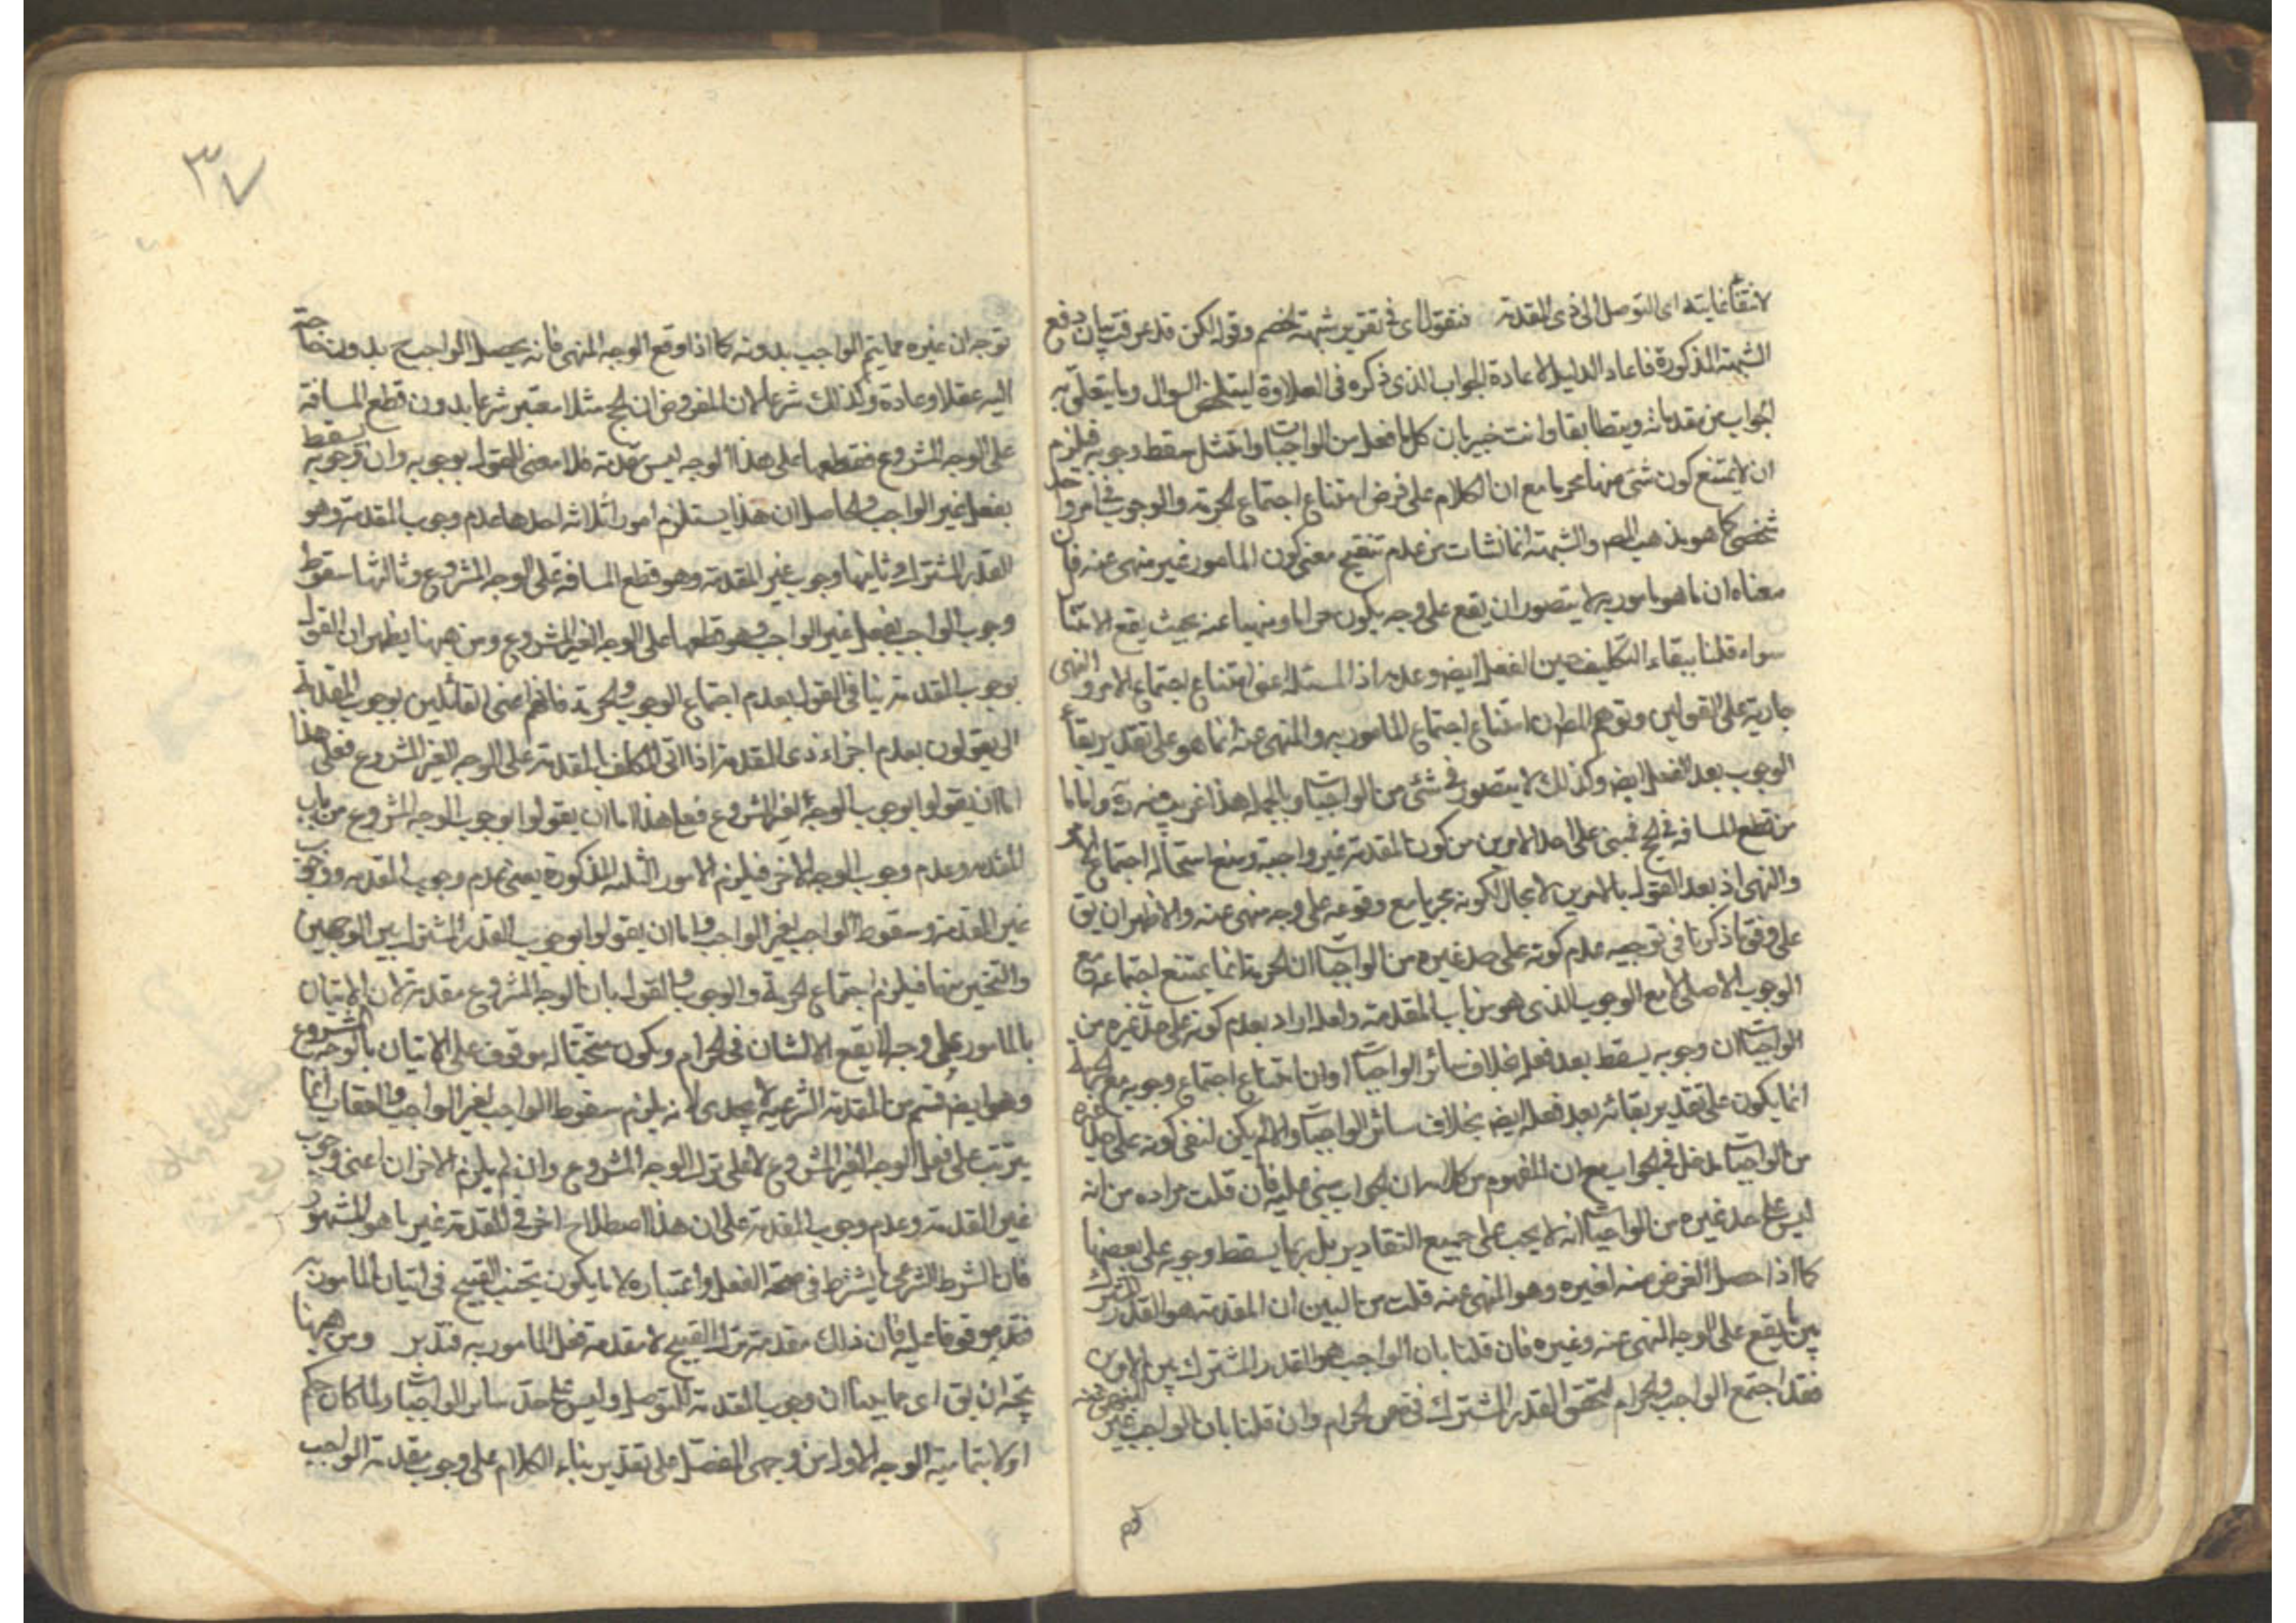 لانتفاء غايته اى التوصل الى ذى المقدمة فنقول اى فى تقرير شبهة الخصم وقوله لكن قد عرفت بيان دفع
الشبهة المذكورة فاعاد الدليل لاعادة الجواب الذى ذكره فى العلاوة ليتلخص السوال وما يتعلق به
الجواب من مقدماته ويتطابقا وانت خبير بان كل ما فعل من الواجبات وامتثل سقط وجوبه فيلزم
ان لا يمتنع كون شئ منها محرما مع ان الكلام على فرض امتناع اجتماع الحرمة والوجوب فى امر واحد
شخصى كما هو مذهب المصـ والشبهة انما نشات من عدم تنقيح معنى كون المامور غير منهى عنه فان
معناه ان ما هو مامور به لا يتصور ان يقع على وجه يكون حراما ومنهيا عنه بحيث يقع الامتثا
سواء قلنا ببقاء التكليف حين الفعل ايضـ وعدمه اذ المسئلة اعنى امتناع اجتماع الامر والنهى
جارية على القولين وتوهم ان امتناع اجتماع المامور به والمنهى عنه انما هو على تقدير بقاء
الوجوب بعد الفعل ايضـ وكذلك لا يتصور فى شئ من الواجبات وبالجملة هذا غريب منه ره واما ما
من قطع المسافة فى الحج فمبنى على احد الامرين من كون المقدمة غير واجبة ومنع استحالة اجتماع الامر
والنهى اذ بعد القول بالامرين لا مجال لكونه مجزيا مع وقوعه على وجه منهى عنه والاظهر ان يق
على وفق ما ذكرنا فى توجيه عدم كونه على حد غيره من الواجبات ان الحرمة انما يمتنع اجتماعه مع
الوجوب الاصلى لا مع الوجوب الذى هو من باب المقدمة ولعله اراد بعدم كونه على حد غيره من
الواجبات ان وجوبه يسقط بعد فعله بخلاف سائر الواجبات وان امتناع اجتماع وجوبه مع الحرمة
انما يكون على تقدير بقائه بعد فعله ايضـ بخلاف سائر الواجبات والا لم يكن لنفى كونه على حد غيره
من الواجبات مدخل فى الجواب مع ان المفهوم من كلامه ان الجواب مبنى عليه فان قلت مراده من انه
ليس على حد غيره من الواجبات انه لا يجب على جميع التقادير بل ربما يسقط وجوبه على بعضها
كما اذا حصل الغرض منه لغيره وهو المنهى عنه قلت من البين ان المقدمة هو القدر المشترك
بين ما يقع على الوجه المنهى عنه وغيره فان قلنا بان الواجب هو القدر المشترك بين الامرين
فقد اجتمع الواجب والحرام لتحقق القدر المشترك فى ضمن الحرام وان قلنا بان الواجب غير المنهى عنه
٣٧
توجه ان غيره مما يتم الواجب بدونه كما اذا وقع الوجه المنهى فانه يحصل الواجب ح بدون حاجة
اليه عقلا وعادة وكذلك شرعا لان المفروض ان الحج مثلا معتبر شرعا بدون قطع المسافة
على الوجه المشروع فقطعها على هذا الوجه ليس مقدمة فلا معنى للقول بوجوبه وان وجوبه يسقط
بفعل غير الواجب والحاصل ان هذا يستلزم امورا ثلاثة احدها عدم وجوب المقدمة وهو
القدر المشترك وثانيها وجوب غير المقدمة وهو قطع المسافة على الوجه المشروع وثالثها سقوط
وجوب الواجب بفعل غير الواجب وهو قطعها على الوجه الغير المشروع ومن ههنا يظهر ان القول
بوجوب المقدمة ينافى القول بعدم اجتماع الوجوب والحرمة فانهم اعنى القائلين بوجوب المقدمة
اما يقولون بعدم اجزاء ذى المقدمة اذا اتى المكلف بالمقدمة على الوجه الغير المشروع فعلى هذا
اما ان يقولوا بوجوب الوجه الغير المشروع فعلى هذا اما ان يقولوا بوجوب الوجه المشروع من باب
المقدمة وعدم وجوب الوجه الاخر فيلزم الامور الثلثة المذكورة يعنى عدم وجوب المقدمة ووجوب
غير المقدمة وسقوط الواجب بغير الواجب واما ان يقولوا بوجوب القدر المشترك بين الوجهين
والتخيير بينهما فيلزم اجتماع الحرمة والوجوب والقول بان الوجه المشروع مقدمة لان الاتيان
بالمامور على وجه لا يقع الانسان فى الحرام ويكون مجتنبا له موقوف على الاتيان بالوجه المشروع
وهو ايضـ قسم من المقدمة الشرعية لا يجدى لانه يلزم سقوط الواجب بغير الواجب والعقاب انما
يترتب على فعل الوجه الغير المشروع لا على ترك الوجه المشروع وان لم يلزم الاخران اعنى وجوب
غير المقدمة وعدم وجوب المقدمة على ان هذا اصطلاح اخر فى المقدمة غير ما هو المشهور
فان الشرط الشرعى ما يشترط فى صحة الفعل واعتباره لا ما يكون تجنب القبيح فى اتيان المامور به
موقوفا عليه فان ذلك مقدمة ترك القبيح لا مقدمة فعل المامور به فتدبر ومن ههنا
يتجه ان يق اى مما بينا ان وجوب المقدمة للتوصل وليس على حد سائر الواجبات ولما كان حكم
اولا بتمامية الوجه الاول من وجهى المفصل على تقدير بناء الكلام على وجوب مقدمة الواجب